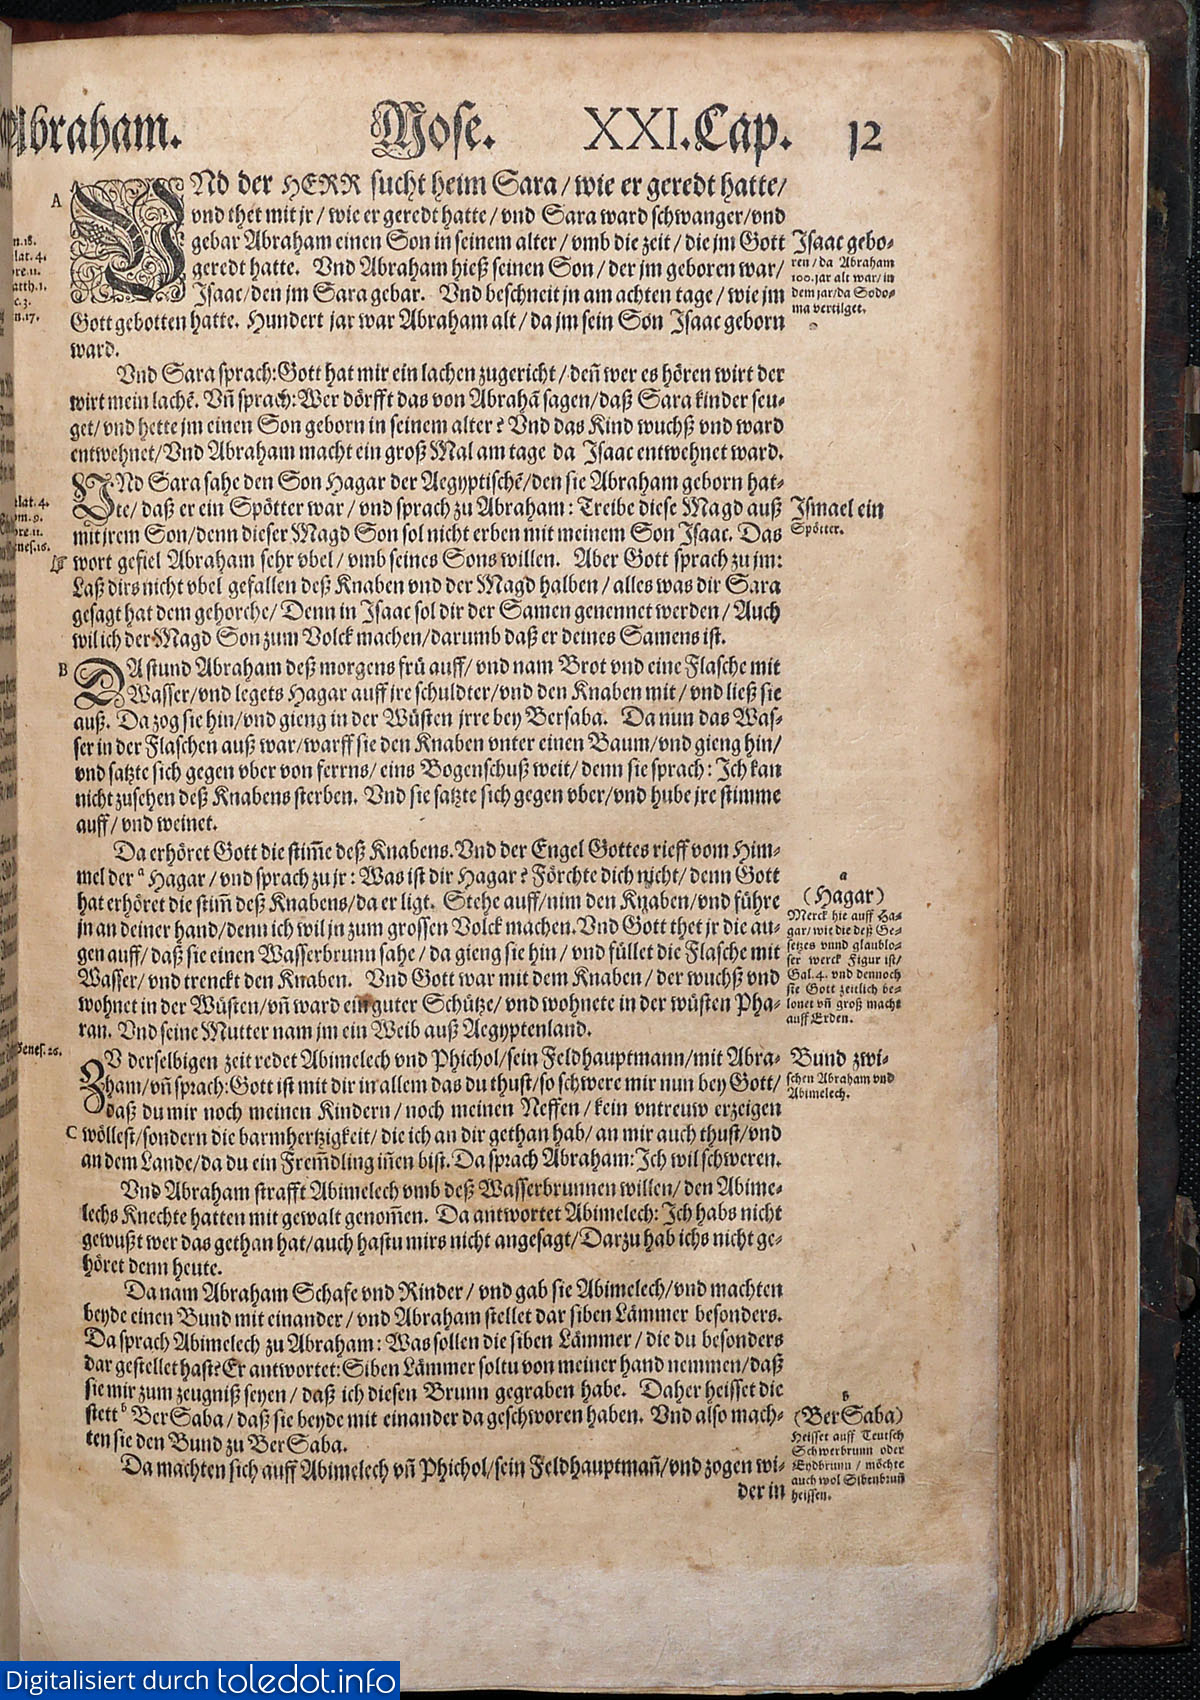 Abraham. Mose. XXI. Cap. 12
A
VNd der HERR sucht heim Sara / wie er geredt hatte /
vnd thet mit jr / wie er geredt hatte / vnd Sara ward schwanger / vnd
gebar Abraham einen Son in seinem alter / vmb die zeit / die jm Gott
geredt hatte. Vnd Abraham hieß seinen Son / der jm geboren war /
Isaac / den jm Sara gebar. Vnd beschneit jn am achten tage / wie jm
Gott gebotten hatte. Hundert jar war Abraham alt / da jm sein Son Isaac geborn
ward.
Isaac gebo-
ren / da Abraham
100. jar alt war / in
dem jar / da Sodo-
ma vertilget.
Vnd Sara sprach: Gott hat mir ein lachen zugericht / deñ wer es hören wirt der
wirt mein lachẽ. Vñ sprach: Wer dörfft das von Abrahã sagen / daß Sara kinder seu-
get / vnd hette jm einen Son geborn in seinem alter? Vnd das Kind wuchß vnd ward
entwehnet / Vnd Abraham macht ein groß Mal am tage da Isaac entwehnet ward.
VNd Sara sahe den Son Hagar der Aegyptischẽ / den sie Abraham geborn hat-
te / daß er ein Spötter war / vnd sprach zu Abraham: Treibe diese Magd auß
mit jrem Son / denn dieser Magd Son sol nicht erben mit meinem Son Isaac. Das
wort gefiel Abraham sehr vbel / vmb seines Sons willen. Aber Gott sprach zu jm:
Laß dirs nicht vbel gefallen deß Knaben vnd der Magd halben / alles was dir Sara
gesagt hat dem gehorche / Denn in Isaac sol dir der Samen genennet werden / Auch
wil ich der Magd Son zum Volck machen / darumb daß er deines Samens ist.
Ismael ein
Spötter.
B
DA stund Abraham deß morgens frü auff / vnd nam Brot vnd eine Flasche mit
Wasser / vnd legets Hagar auff jre schuldter / vnd den Knaben mit / vnd ließ sie
auß. Da zog sie hin / vnd gieng in der Wüsten jrre bey Bersaba. Da nun das Was-
ser in der Flaschen auß war / warff sie den Knaben vnter einen Baum / vnd gieng hin /
vnd satzte sich gegen vber von ferrns / eins Bogenschuß weit / denn sie sprach: Ich kan
nicht zusehen deß Knabens sterben. Vnd sie satzte sich gegen vber / vnd hube jre stimme
auff / vnd weinet.
Da erhöret Gott die stim̃e deß Knabens. Vnd der Engel Gottes rieff vom Him-
mel der a Hagar / vnd sprach zu jr: Was ist dir Hagar? Förchte dich nicht / denn Gott
hat erhöret die stim̃ deß Knabens / da er ligt. Stehe auff / nim den Knaben / vnd führe
jn an deiner hand / denn ich wil jn zum grossen Volck machen. Vnd Gott thet jr die au-
gen auff / daß sie einen Wasserbrunn sahe / da gieng sie hin / vnd füllet die Flasche mit
Wasser / vnd trenckt den Knaben. Vnd Gott war mit dem Knaben / der wuchß vnd
wohnet in der Wüsten / vñ ward ein guter Schütze / vnd wohnete in der wüsten Pha-
ran. Vnd seine Mutter nam jm ein Weib auß Aegyptenland.
a
(Hagar)
Merck hie auff Ha-
gar / wie die deß Ge-
setzes vnnd glaublo-
ser werck Figur ist /
Gal. 4. vnd dennoch
sie Gott zeitlich be-
lonet vñ groß macht
auff Erden.
Genes. 26.
ZV derselbigen zeit redet Abimelech vnd Phichol / sein Feldhauptmann / mit Abra-
ham / vñ sprach: Gott ist mit dir in allem das du thust / so schwere mir nun bey Gott /
daß du mir noch meinen Kindern / noch meinen Neffen / kein vntreuw erzeigen
C
wöllest / sondern die barmhertzigkeit / die ich an dir gethan hab / an mir auch thust / vnd
an dem Lande / da du ein Frem̃dling iñen bist. Da sprach Abraham: Ich wil schweren.
Bund zwi-
schen Abraham vnd
Abimelech.
Vnd Abraham strafft Abimelech vmb deß Wasserbrunnen willen / den Abime-
lechs Knechte hatten mit gewalt genom̃en. Da antwortet Abimelech: Ich habs nicht
gewußt wer das gethan hat / auch hastu mirs nicht angesagt / Darzu hab ichs nicht ge-
höret denn heute.
Da nam Abraham Schafe vnd Rinder / vnd gab sie Abimelech / vnd machten
beyde einen Bund mit einander / vnd Abraham stellet dar siben Lämmer besonders.
Da sprach Abimelech zu Abraham: Was sollen die siben Lämmer / die du besonders
dar gestellet hast? Er antwortet: Siben Lämmer soltu von meiner hand nemmen / daß
sie mir zum zeugniß seyen / daß ich diesen Brunn gegraben habe. Daher heisset die
stett b BerSaba / daß sie beyde mit einander da geschworen haben. Vnd also mach-
ten sie den Bund zu BerSaba.
b
(BerSaba)
Heisset auff Teutsch
Schwerbrunn oder
Eydbrunn / möchte
auch wol Sibenbruñ
heissen.
Da machten sich auff Abimelech vñ Phichol / sein Feldhauptmañ / vnd zogen wi-
der in
Digitalisiert durch toledot.info